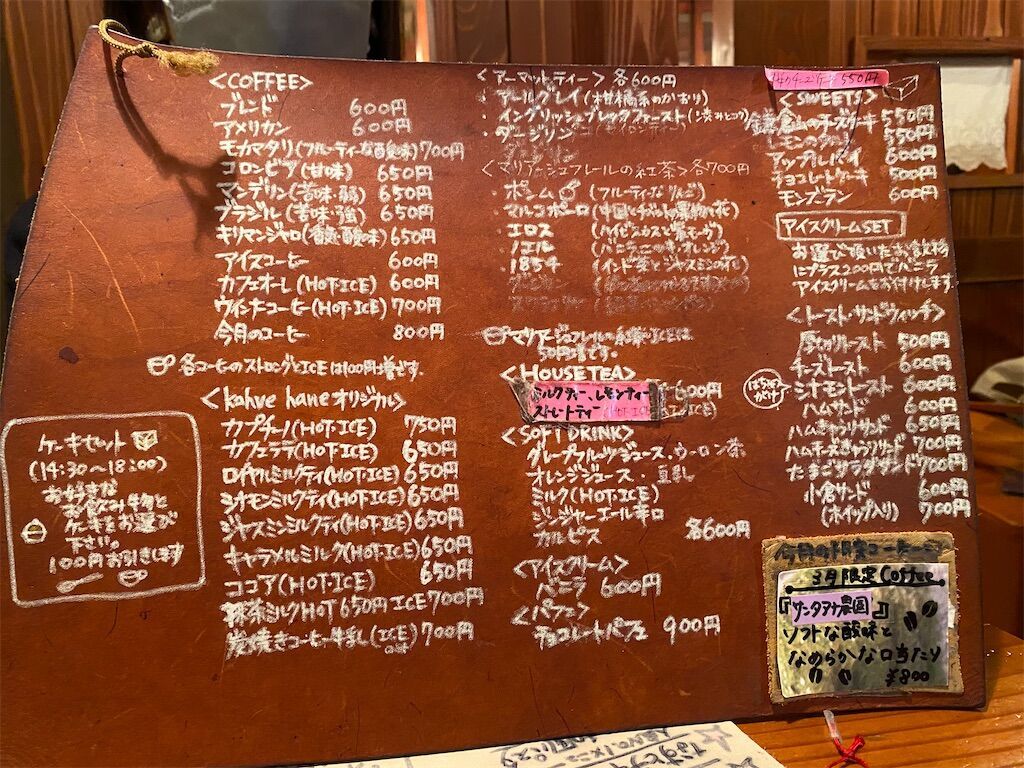 <COFFEE>
ブレンド 600円
アメリカン 600円
モカマタリ(フルーティーな酸味)700円
コロンビア(甘味) 650円
マンデリン(苦味・弱) 650円
ブラジル(苦味・強) 650円
キリマンジャロ(香・酸味)650円
アイスコーヒー 600円
カフェオーレ(HOT・ICE) 600円
ウィンナーコーヒー(HOT・ICE)700円
今月のコーヒー 800円
各コーヒーのストロングとICEは100円増です。
<kahve hane オリジナル>
カプチーノ(HOT・ICE) 750円
カフェラテ(HOT・ICE) 650円
ロイヤルミルクティ(HOT・ICE)650円
シナモンミルクティ(HOT・ICE)650円
ジャスミンミルクティ(HOT・ICE)650円
キャラメルミルク(HOT・ICE)650円
ココア(HOT・ICE) 650円
抹茶ミルクHOT 650円 ICE700円
炭焼きコーヒー牛乳(ICE only)700円
ケーキセット
(14:30〜18:00)
お好きな
お飲み物と
ケーキをお選び
下さい。
100円お引きします
<アーマットティー> 各600円
・アールグレイ(柑橘系のかおり)
・イングリッシュブレックファースト
・ダージリン
<マリアージュフレールの紅茶>各700円
・ポーム (フルーティなりんご)
・マルコポーロ
・エロス
・ノエル
・1854 (インド茶とジャスミンの花)
マリアージュフレールの
50円増です。
<HOUSE TEA>
ミルクティー、レモンティー 600円
ストレートティー(HOT・ICE)
<SOFT DRINK>
グレープフルーツジュース・ウーロン茶
オレンジジュース・豆乳
ミルク(HOT・ICE)
ジンジャーエール辛口
カルピス 各600円
<アイスクリーム>
バニラ 600円
<パフェ>
チョコレートパフェ 900円
550円
<SWEETS>
チーズケーキ 550円
レモンのタルト 550円
アップルパイ 600円
チョコレートケーキ 500円
モンブラン 600円
アイスクリームSET
お選び頂いたお飲物
にプラス200円でバニラ
アイスクリームをお付けします
<トースト・サンドウィッチ>
厚切りトースト 500円
チーズトースト 600円
はちみつがけ シナモントースト 600円
ハムサンド 600円
ハムきゅうりサンド 650円
ハムチーズきゅうりサンド 700円
たまごサラダサンド 700円
小倉サンド 600円
(ホイップ入り) 700円
今月の限定コーヒー
3月限定Coffee
『サンタアナ農園』
ソフトな酸味と
なめらかな口当たり
¥800